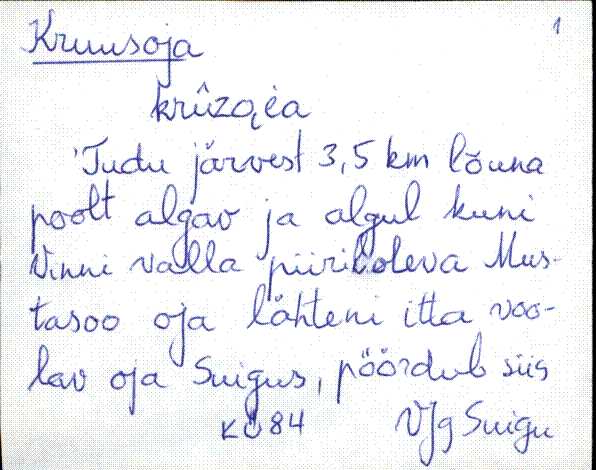 1
Kruusoja
krûzoja
Tudu järvest 3,5 km lõuna
poolt algav ja algul kuni
Vinni valla piiril oleva Mus-
tasoo oja lähteni itta voo-
lav oja Suigus, pöördub siis
KÜ 84 VJg Suigu